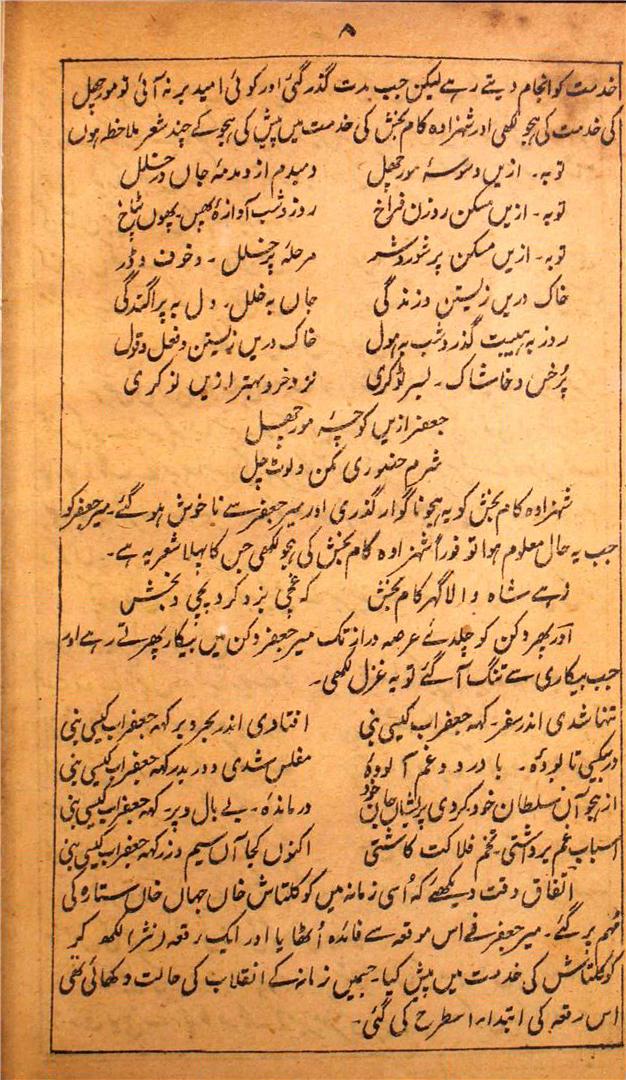 ۸
خدمت کو انجام دیتے رہے لیکن جب مدت گذر گئی اور کوئی امید بر نہ آئی تو مورچھل
کی خدمت کی ہجو لکھی اور شہزادہ کام بخش کی خدمت میں پیش کی ہجو کے چند شعر ملاحظہ ہوں
توبہ۔ ازیں وسوسۂ مورچھل دمبدم از دمدمۂ جاں در خلل
توبہ۔ ازیں مسکن روزن فراخ روز و شب آوازۂ پھس پھوں
توبہ۔ ازیں مسکن پر شور و شر مرحلۂ پر خلل۔ و خوف و ڈر
خاک دریں زیستن و زندگی جاں بہ خلل۔ دل بہ پراگندگی
روز بہ ہیبت گذرد شب بہ ہول خاک دریں زیستن و فعل و قول
پُر خس و خاشاک۔ بسر ٹوکری نزد خرد بہتر ازیں نوکری
جعفر ازیں کوچۂ مورچھل
شرم حضوری مکن و لوٹ چل
شہزادہ کام بخش کو یہ ہجو ناگوار گذری اور میر جعفر سے ناخوش ہو گئے۔ میر جعفر کو
جب یہ حال معلوم ہوا تو فوراً شہزادہ کام بخش کی ہجو لکھی جس کا پہلا شعر یہ ہے۔
زہے شاہ والا گہر کام بخش کہ غچی بزد کرد
اور پھر دکن کو چلدئے عرصہ دراز تک میر جعفر دکن میں بیکار پھرتے رہے اور
جب بیکاری سے تنگ آگئے تو یہ غزل لکھی۔
تنہا شدی اندر سفر۔ کہہ جعفر اب کیسی بنی افتادی اندر بحر و بر کہہ جعفر اب کیسی بنی
در بیکسی تا بودۂ۔ با درد و غم آلودۂ مفلس شدی و در بدر کہہ جعفر اب کیسی بنی
از ہجو آں سلطان خود کردی پریشاں جان خود درماندۂ۔ بے بال و پر۔ کہہ جعفر اب کیسی بنی
اسباب غم برداشتی۔ تخم فلاکت کاشتی اکنوں کجا آں سیم و زر کہہ جعفر اب کیسی بنی
اتفاق وقت دیکھئے کہ اُسی زمانہ میں کوکلتاش خاں جہاں خاں ستارہ کی
مُہم پر گئے۔ میر جعفر نے اس موقعہ سے فائدہ اُٹھایا اور ایک رقعہ (نثر) لکھ کر
کوکلتاش کی خدمت میں پیش کیا۔ جسمیں زمانہ کے انقلاب کی حالت دکھائی تھی
اس رقعہ کی ابتداء اسطرح کی گئی۔